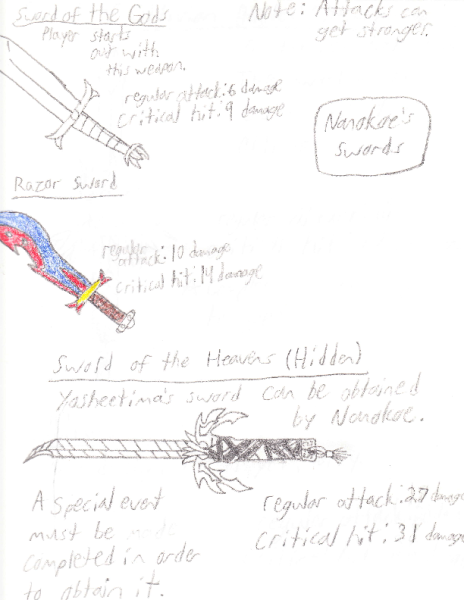 Sword of the Gods
Player starts
out with
this weapon.
regular attack: 6 damage
critical hit: 9 damage
Note: Attacks can
get stronger.
Nanokoe's
Swords
Razor Sword
regular
attack: 10 damage
critical hit: 14 damage
Sword of the Heavens (Hidden)
Yasheetima's sword can be obtained
by Nanokoe.
A special event
must be made
completed in order
to obtain it.
regular attack: 27 damage
critical hit: 31 damage